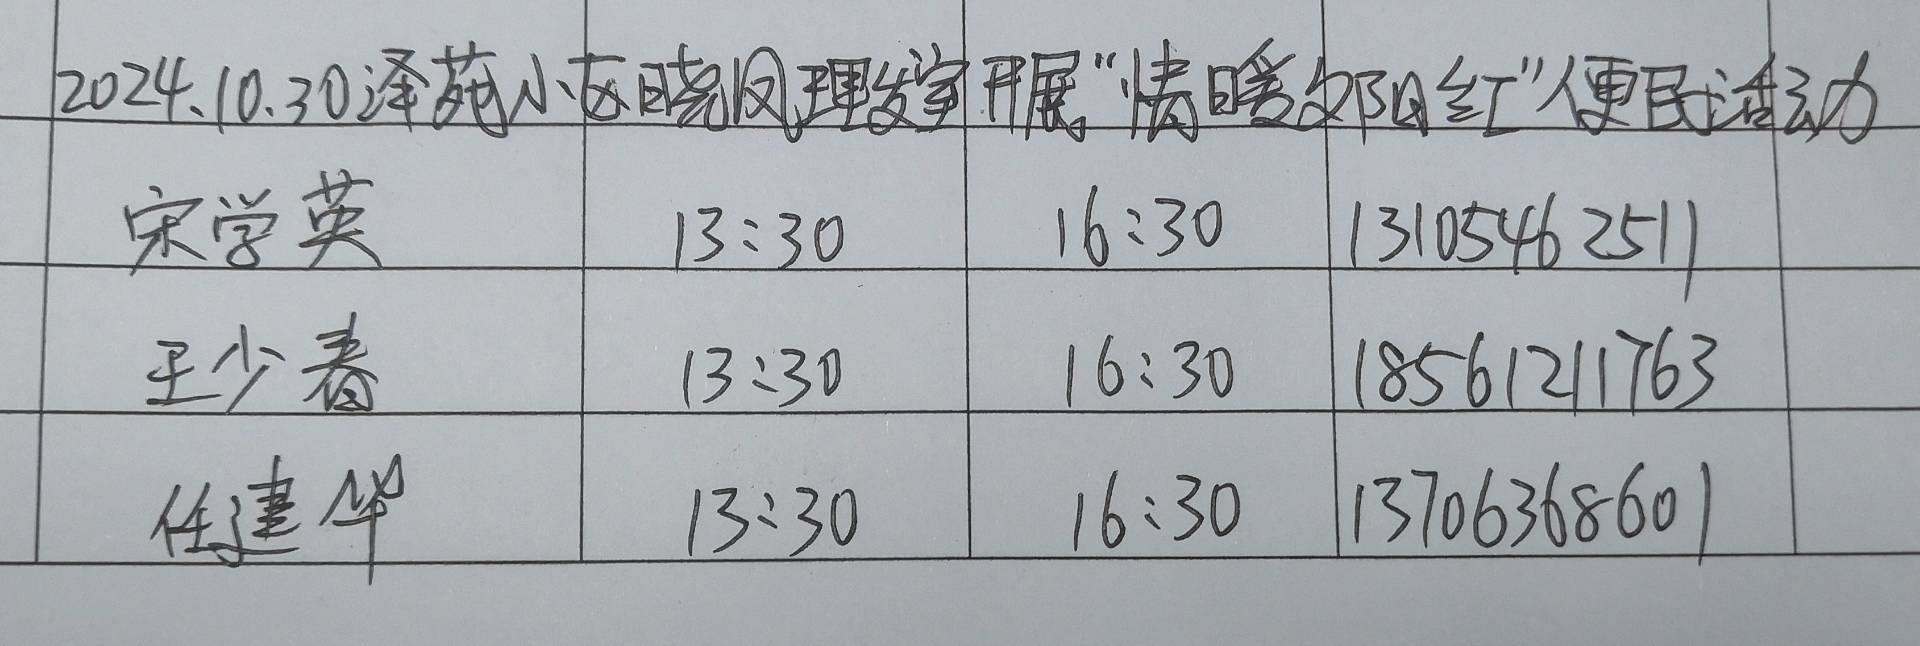 2024.10.30泽苑小区晓凤理发室开展“情暖夕阳红”便民活动
宋学英 13:30 16:30 13105462511
王少春 13:30 16:30 18561211763
任建华 13:30 16:30 13706368601